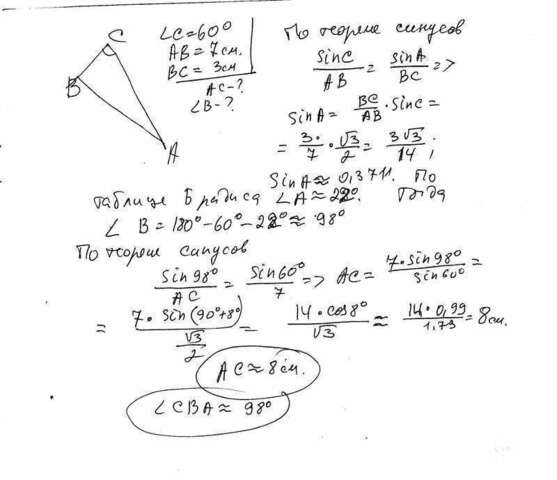 C
B
A
∠C=60°
AB=7см.
BC=3см
AC-?
∠B-?
По теореме синусов
sinC/AB = sinA/BC =>
sinA= BC/AB · sinC=
= 3·/7 · √3/2 = 3√3/14;
sinA≈0,3711. По
таблице Брадиса ∠A≈22°. Тогда
∠ B=180°-60°-22°≈98°
По теореме синусов
sin98°/AC = sin60°/7 => AC= 7·sin98°/sin60° =
= 7·sin(90°+8°)/(√3/2) = 14·cos8°/√3 ≈ 14·0,99/1,73 = 8см.
AC≈8см.
∠CBA≈98°